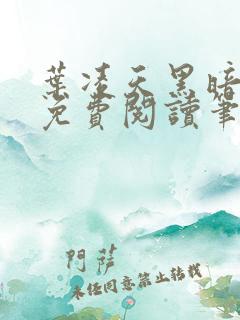 葉凌天黑暗
免費閱讀筆
門薩
未經同意禁止轉載